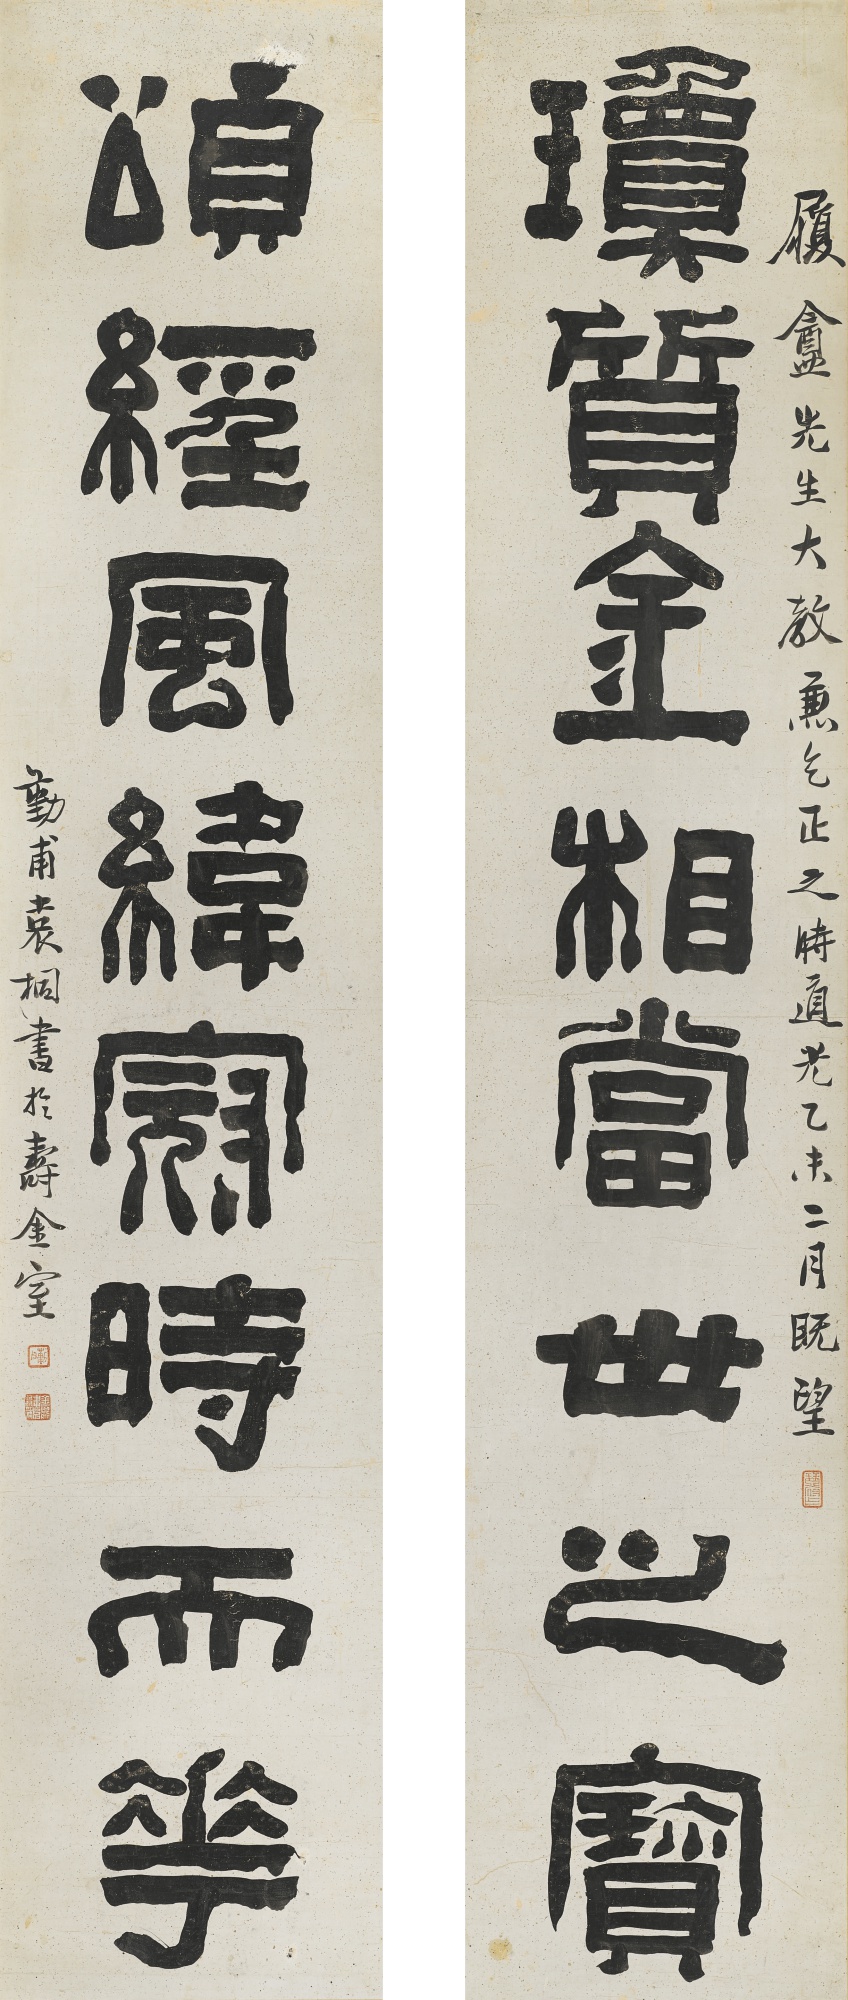 履盦先生大教兼乞正之時道光乙未二月既望
瓊質金相當世之寶
頌經風緯冠時而華
勤甫袁桐書於壽金室